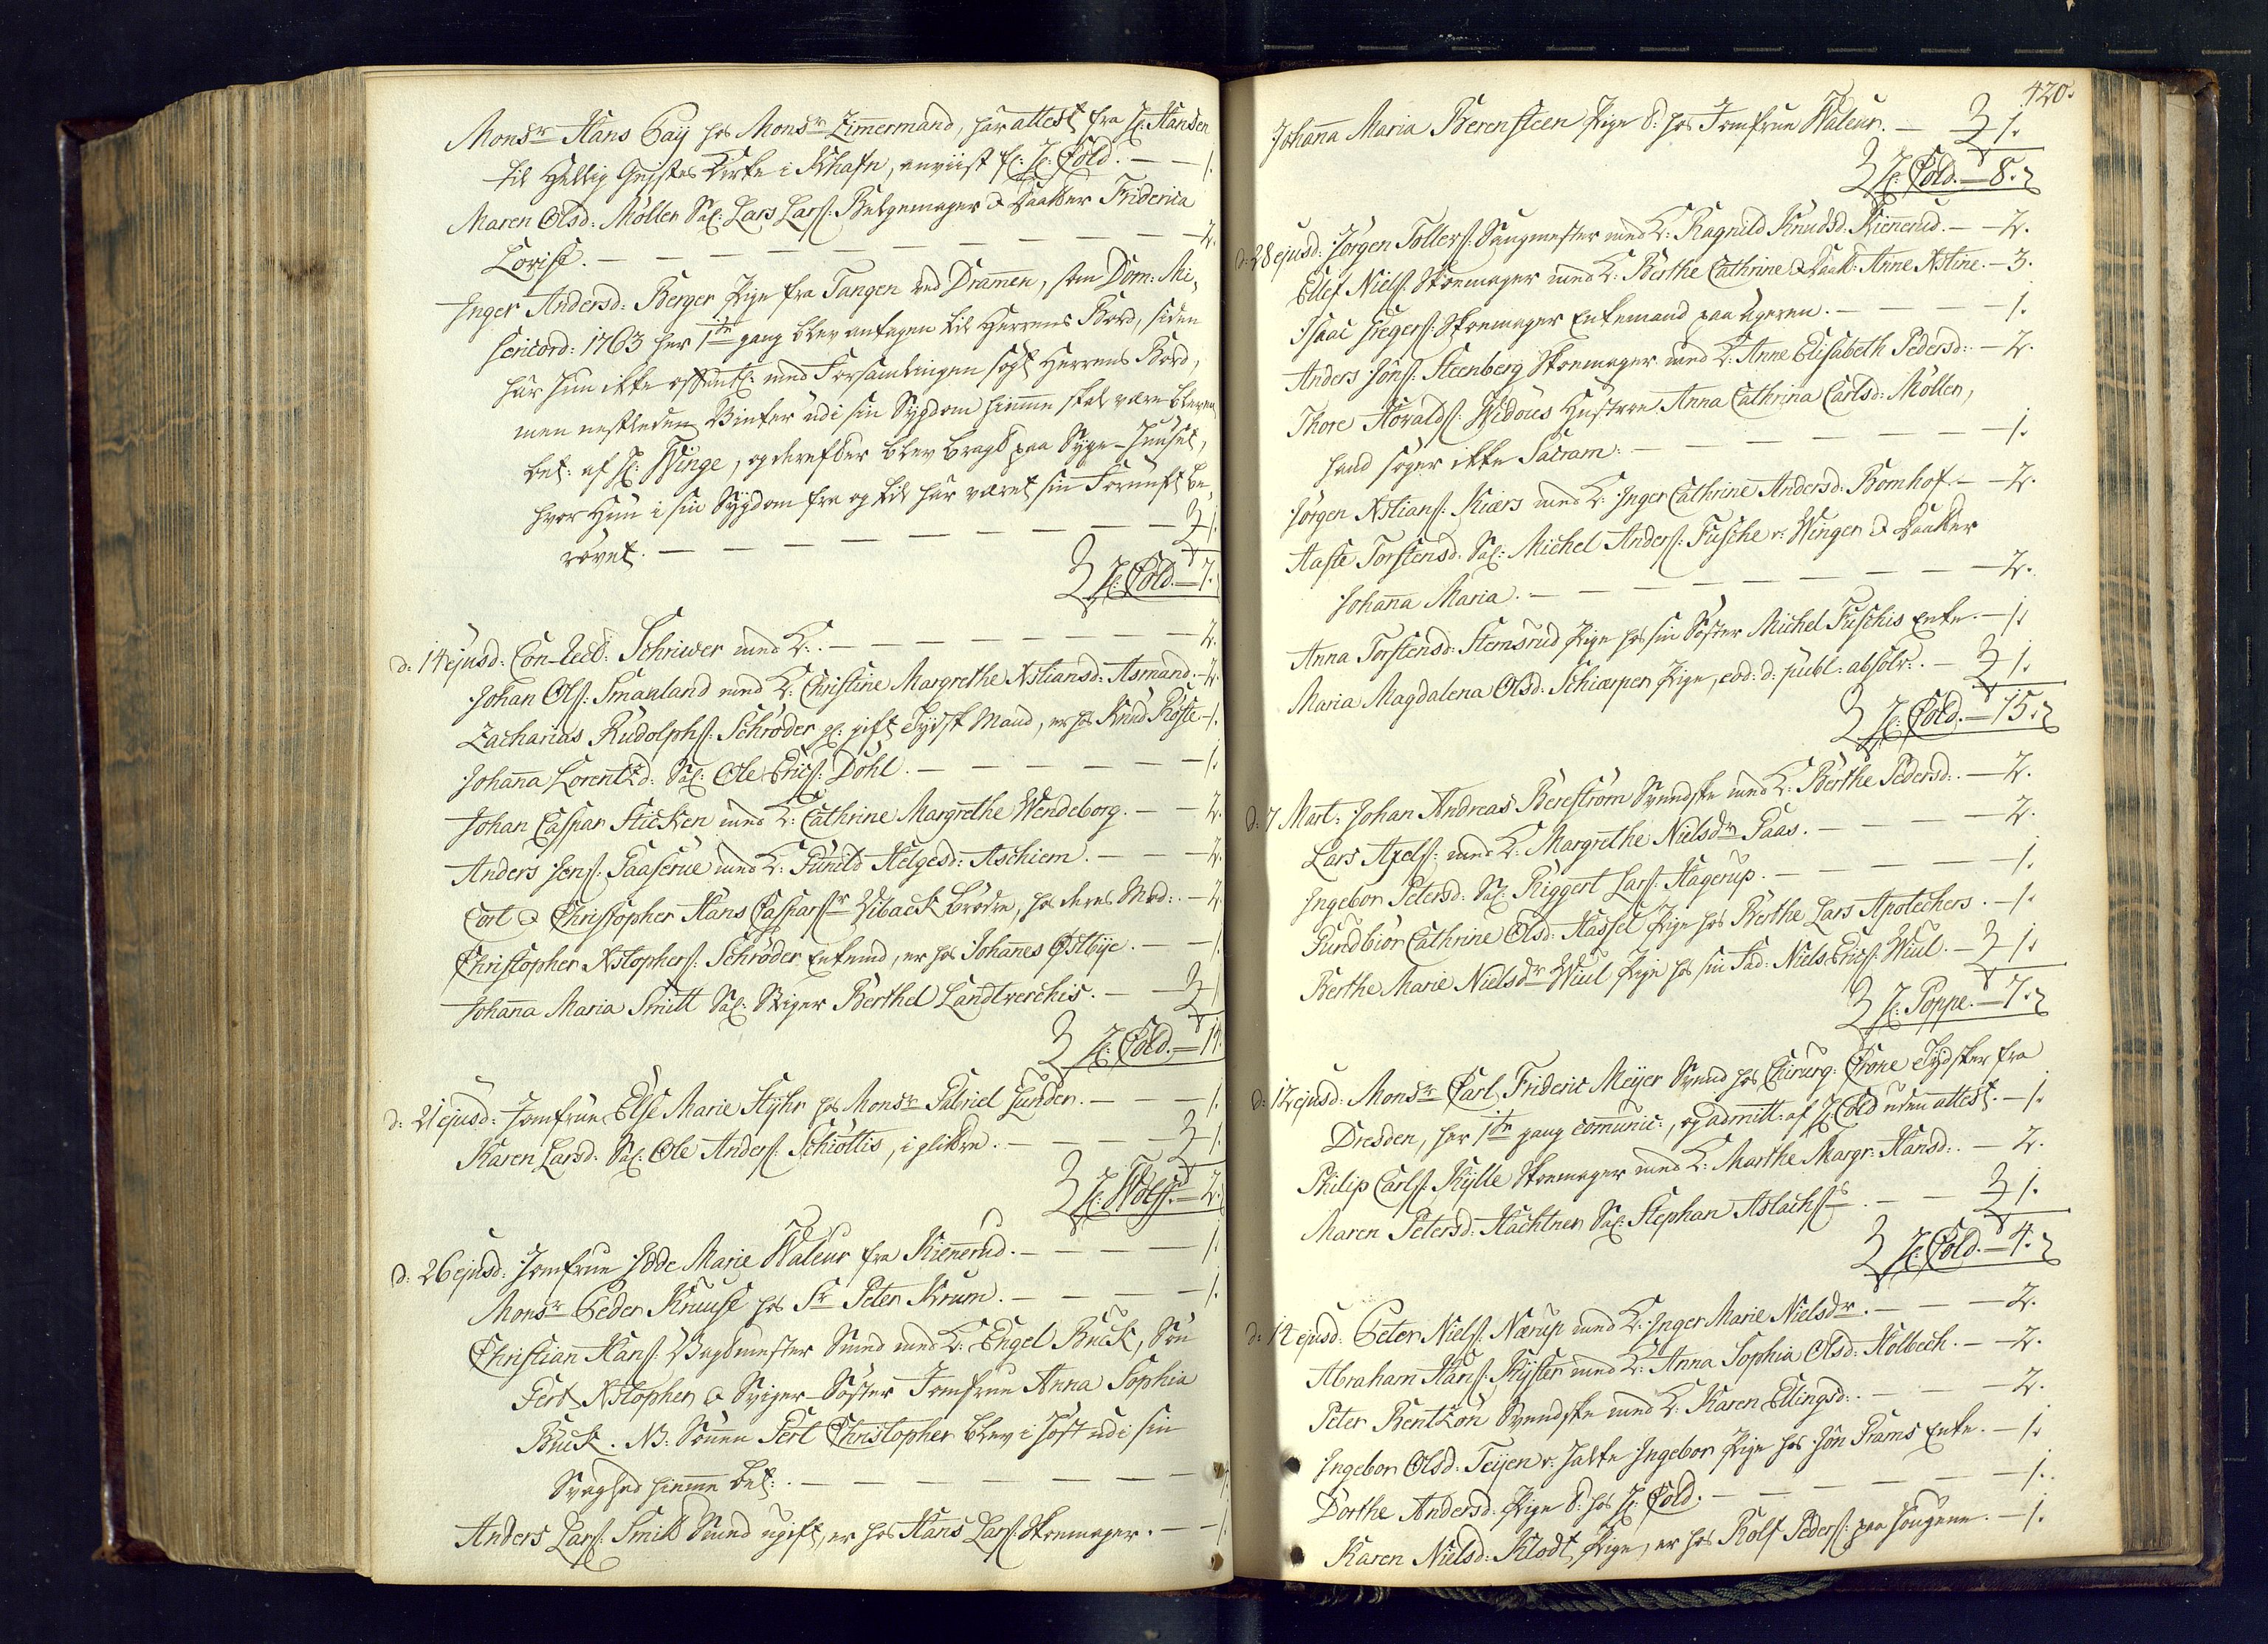 Monsr Hans Gay hos Monsr Zimmermand, har attest fra H: Hansen
til Hellig Geistes Kirke i Khafn, anviist fr: H: Cold. — — 1.
Maren Olsd: Möller Sal: Lars Larss: Belgemager & Daatter Friderica
Lovise. — — — — — — — — 2.
Inger Andersd: Berger Pige fra Tangen ved Dramen, som Dom: Mi,
sericord: 1763 her 1ste gang blev antagen til Herrens Bord, siden
har hun ikke offentl: med Forsamlingen søgt Herrens Bord,
men nestleden Vinter udi sin Sygdom hiemme skal være bleven
bet: af H: Winge, og derefter blev bragt paa Syge-Huuset,
hvor Hun i sin Sygdom fra og til har været sin Fornuft be,
røvet. — — — — — — — — 1.
H: Cold. — 7.
d: 14 ejusd: Con-Rect: Schriwer med K: — — — — — 2.
Johan Olss: Smaaland med K: Christine Margrethe Xstiansd: Asmand. — 2.
Zacharias Rudolphs: Schröder gl: gift Tydsk Mand, er hos Knud Röste. — 1.
Johanna Lorentzd: Sal: Ole Erics: Döhl. — — — — — 1.
Johan Caspar Sticken med K: Cathrine Margrethe Wendeborg. — — 2.
Anders Jens: Gaaserue med K: Gunild Helgesd: Aschiem. — — 2.
Cort & Christopher Hans Casparssr Vibaek Brødre, hos deres Mod: — 2.
Christopher Xstophers: Schröder Enkemd, er hos Johannes Østbye. — — 1.
Johanna Maria Smitt Sal: Stiger Berthel Landtverchis. — — 1.
H: Cold. — 14.
d: 21 ejusd: Jomfrue Else Marie Hyhr hos Monsr Gabriel Lunder. — — — 1.
Karen Larsd: Sal: Ole Anders: Schiöttis, i glittre. — — — — 1.
H: Wolff. — 2.
d: 26 ejusd: Jomfrue Hedde Marie Waleur fra Kiennerud. — — — — 1.
Monsr Peder Kruuse hos Sr Peter Krum. — — — — 1.
Christian Hans: Vagtmester Smed med K: Engel Buck, Søn
Gert Xstopher & Sviger-Søster Jomfrue Anna Sophia
Buck. NB: Sønnen Gert Christopher blev i Høst udi sin
Svaghed hiemme bet: — — — — — —
Anders Lars: Smitt Svend ugift, er hos Hans Lars: Skoemager. — — 1.
420.
Johanna Maria Berensteen Pige d: hos Jomfrue Waleur. — 1.
H: Cold. — 8.
d: 28 ejusd: Jörgen Tollers: Saugmester med K: Ragnild Knudsd: Kiennerud. — — 2.
Ellef Niels: Skoemager med K: Berthe Cathrine & Daatt: Anne Xstine. — 3.
Isaac Siegers: Skoemager Enkemand paa Ageren. — — — — 1.
Anders Jöns: Steenberg Skoemager med K: Anne Elisabeth Pedersd: — 2.
Thore Havalds: Widöes Hustroe Anna Cathrina Carlsd: Möller,
hand søger ikke Sacram: — — — — — — — 1.
Jörgen Xstians: Kiærs med K: Inger Cathrine Andersd: Bomhof. — — 2.
Aaste Torstensd: Sal: Michel Anders: Fusche v: Winger & Daatter
Johanna Maria. — — — — — — — — 2.
Anna Torstensd: Stemsrud Pige hos sin Søster Michel Fuschis Enke. — 1.
Maria Magdalena Olsd: Schiærper Pige, eod: d: publ: absolv: — 1.
H: Cold. — 15.
d: 7 Mart: Johan Andreas Bereström Svendske med K: Berthe Pedersd: — 2.
Lars Axels: med K: Margrethe Nielsdr Gaas. — — — — 2.
Ingebor Petersd: Sal: Riggert Lars: Hagerup. — — — — — 1.
Gundbiör Cathrine Olsd: Hassel Pige hos Berthe Lars Apotechers. — 1.
Berthe Marie Nielsdr Wiul Pige hos sin Fad: Niels Erics: Wiul. — 1.
H: Poppe. — 7.
d: 12 ejusd: Monsr Carl Frideric Meyer Svend hos Chirurg: Crone Tydsker fra
Dresden, her 1ste gang communic:, og admitt: af H: Cold uden attest. — 1.
Philip Carls: Kylle Skoemager med K: Marthe Margr: Hansd: — 2.
Maren Petersd: Hachtner Sal: Stephan Aslachs: — — 1.
H: Cold. — 4.
d: 14 ejusd: Peter Niels: Nærup med K: Inger Marie Nielsdr. — — — 2.
Abraham Hans: Kyster med K: Anna Sophia Olsd: Holbech. — — 2.
Peter Bentzon Svendske med K: Karen Ellingsd: — — — 2.
Ingebor Olsd: Teyen v: halte Ingebor Pige hos Jön Prams Enke. — 1.
Dorthe Andersd: Pige d: hos H: Cold. — — — — — — 1.
Karen Nielsd: Klodt Pige, er hos Rolf Peders: paa Hougene. — 1.